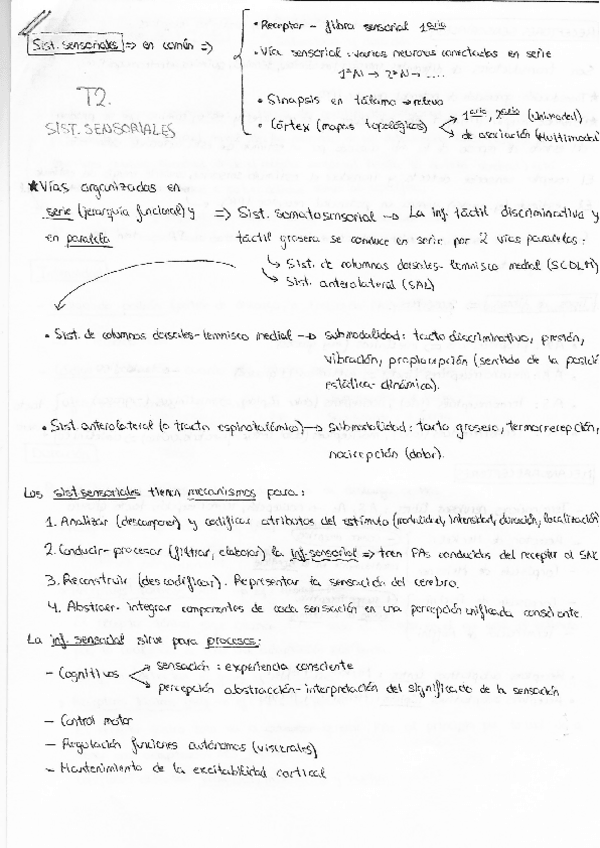 Sist. sensoriales => en común =>
• Receptor - fibra sensorial 1aria
• Vía sensorial: varias neuronas conectadas en serie
1ªN → 2ªN → ....
• Sinapsis en tálamo → relevo
• Córtex (mapas topológicos)
1ario, 2ario (Unimodal)
de asociación (Multimodal
T2.
SIST. SENSORIALES
★ Vías organizadas en
serie (jerarquía funcional) y
en paralela
=> Sist. somatosensorial → La inf. táctil discriminativa y
táctil grosera se conduce en serie por 2 vías paralelas:
↳ Sist. de columnas dorsales-lemnisco medial (SCDLM)
↳ Sist. anterolateral (SAL)
• Sist. de columnas dorsales-lemnisco medial → submodalidad: tacto discriminativo, presión,
vibración, propiocepción (sentido de la posició
estática-dinámica).
• Sist. anterolateral (o tracto espinotalámico) → submodalidad: tacto grosero, termorrecepción,
nocicepción (dolor).
Los sist sensoriales tienen mecanismos para:
1. Analizar (descomponer) y codificar atributos del estímulo (modalidad, intensidad, duración, localización)
2. Conducir-procesar (filtrar, elaborar) la inf. sensorial => tren PAs conducidos del receptor al SNC
3. Reconstruir (descodificar). Representar la sensación del cerebro.
4. Abstraer-integrar componentes de cada sensación en una percepción unificada consciente.
La inf. sensorial sirve para procesos:
- Cognitivos
sensación: experiencia consciente
percepción abstracción-interpretación del significado de la sensación
- Control motor
- Regulación funciones autónomas (viscerales)
- Mantenimiento de la excitabilidad cortical